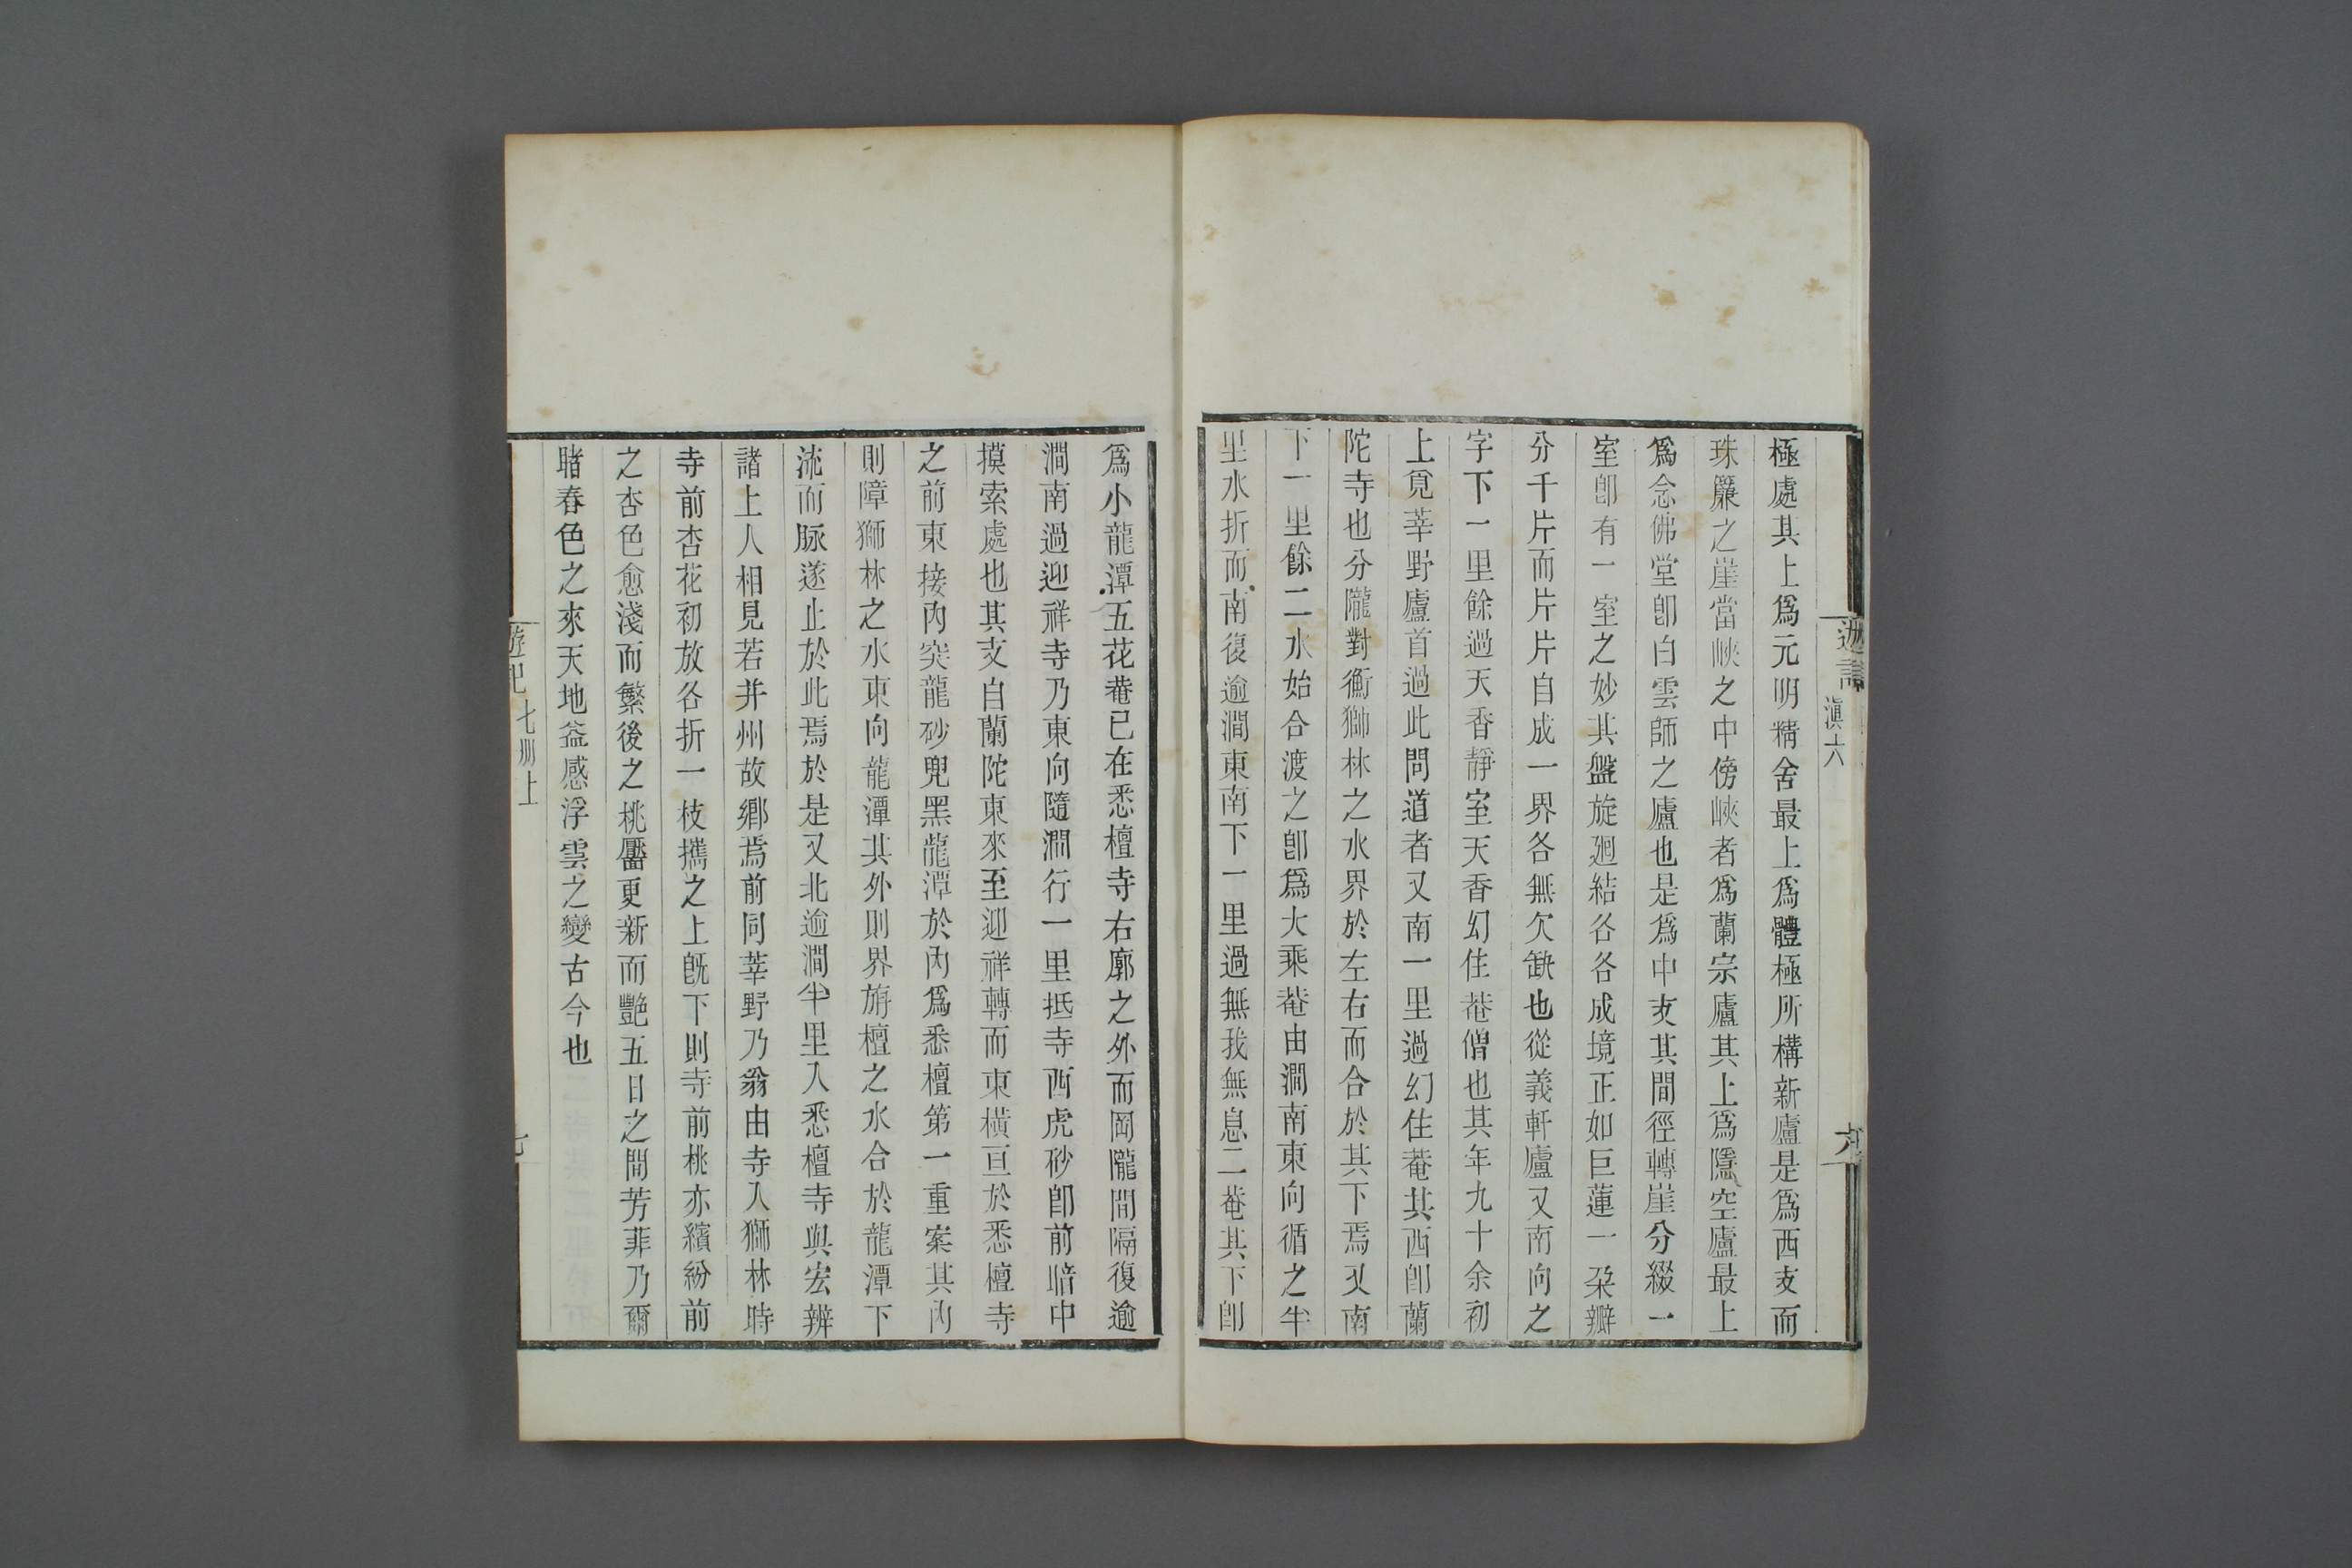 滇六
極處其上爲元明精舍最上爲體極所構新廬是爲西支而
珠簾之崖當峽之中傍峽者爲蘭宗廬其上爲隱空廬最上
爲念佛堂卽白雲師之廬也是爲中支其間徑轉崖分綴一
室卽有一室之妙其盤旋廻結各各成境正如巨蓮一朶瓣
分千片而片片自成一界各無欠缺也從義軒廬又南向之
字下一里餘過天香靜室天香幻住菴僧也其年九十余初
上覓莘野廬首過此問道者又南一里過幻住菴其西卽蘭
陀寺也分隴對衡獅林之水界於左右而合於其下焉又南
下一里餘二水始合渡之卽爲大乘菴由澗南東向循之半
里水折而南復逾澗東南下一里過無我無息二菴其下卽
爲小龍潭五花菴已在悉檀寺右廓之外而岡隴間隔復逾
澗南過迎祥寺乃東向隨澗行一里抵寺西虎砂卽前暗中
摸索處也其支自蘭陀東來至迎祥轉而東橫亘於悉檀寺
之前東接內突龍砂兜黑龍潭於內爲悉檀第一重案其內
則障獅林之水東向龍潭其外則界旃檀之水合於龍潭下
流而脉遂止於此焉於是又北逾澗半里入悉檀寺與宏辨
諸上人相見若并州故鄉焉前同莘野乃翁由寺入獅林時
寺前杏花初放各折一枝攜之上旣下則寺前桃亦繽紛前
之杏色愈淺而繁後之桃靨更新而艷五日之間芳菲乃爾
睹春色之來天地益感浮雲之變古今也
遊記
七冊上